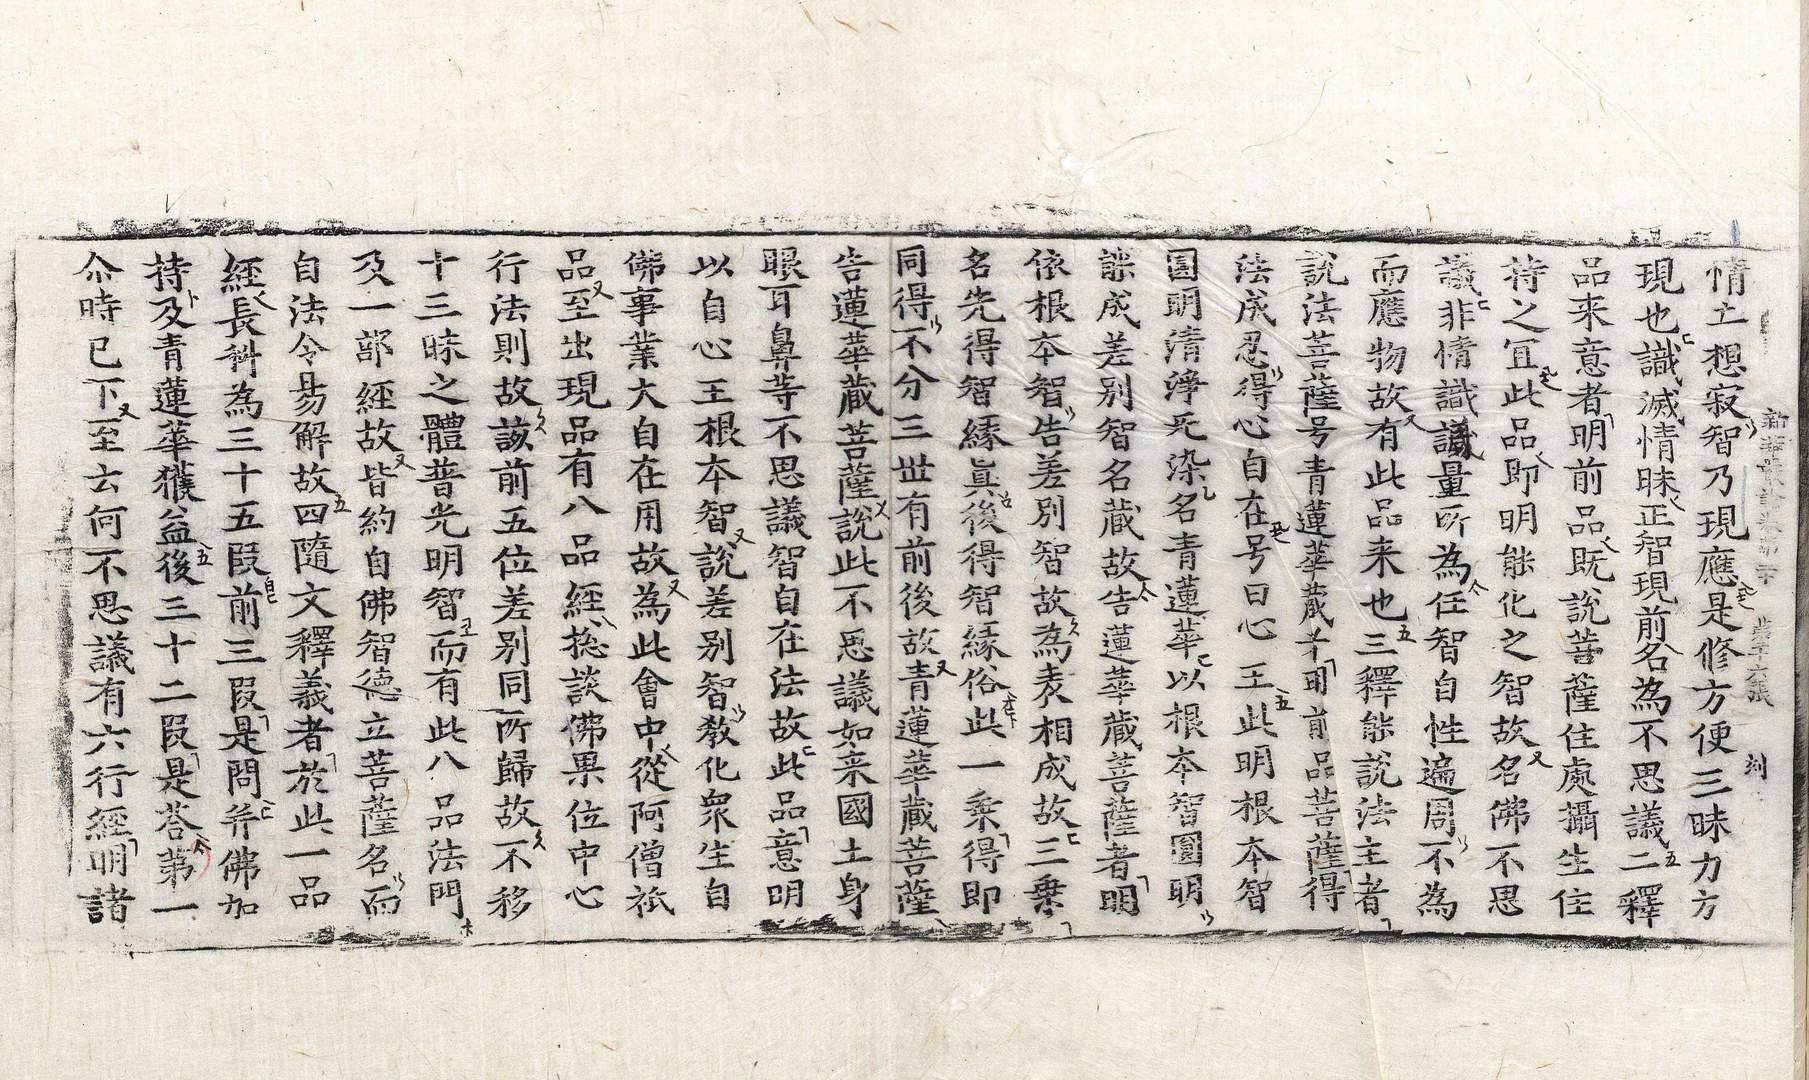 情亡想寂智乃現應是修方便三昧力方
現也識滅情昧正智現前名為不思議二釋
品来意者明前品既說菩薩住處攝生住
持之冝此品即明能化之智故名佛不思
議非情識議量所為任智自性遍周不為
而應物故有此品来也三釋能說法主者
說法菩薩号青蓮華蔵者明前品菩薩得
法成忍得心自在号曰心王此明根本智
圓明清淨无染名青蓮華以根本智圓明
能成差別智名蔵故告蓮華蔵菩薩者明
依根本智告差別智故為表相成故三乗
名先得智緣真後得智緣俗此一乗得即
同得不分三世有前後故青蓮華蔵菩薩
告蓮華蔵菩薩說此不思議如来國土身
眼耳鼻等不思議智自在法故此品意明
以自心王根本智說差別智教化衆生自
佛事業大自在用故為此會中從阿僧祇
品至出現品有八品經惣談佛果位中心
行法則故該前五位差別同所歸故不移
十三昧之體普光明智而有此八品法門
及一部經故皆約自佛智德立菩薩名而
自法令易解故四隨文釋義者於此一品
經長科為三十五段前三段是問并佛加
持及青蓮華獲益後三十二段是荅第一
尒時已下至云何不思議有六行經明諸